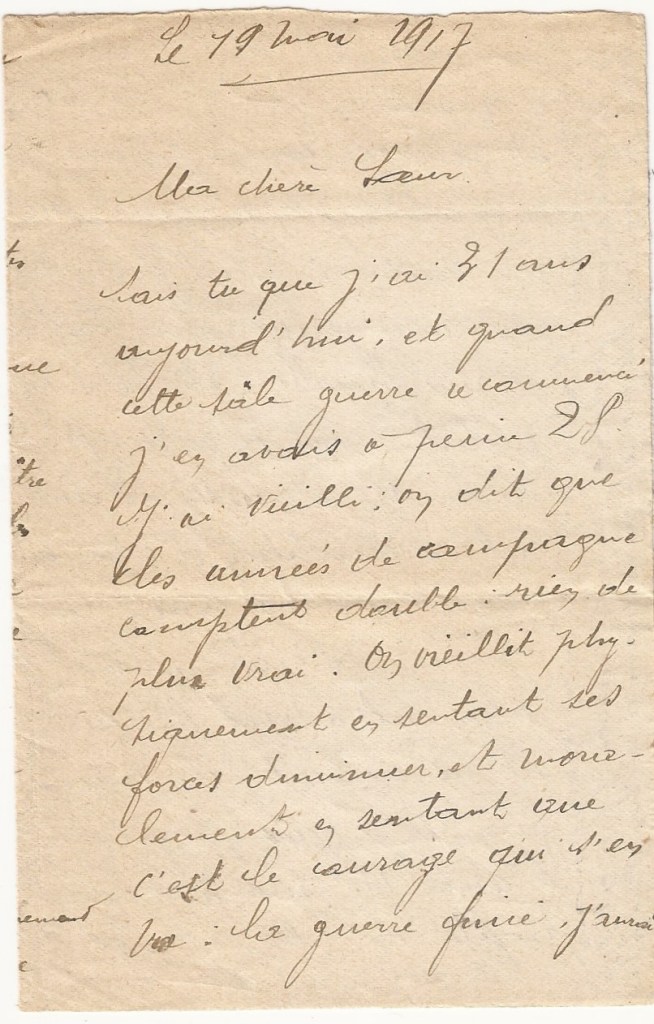 Le 19 mai 1917
Ma chère Sœur
Sais tu que j'ai 31 ans
aujourd'hui, et quand
cette sâle guerre a commencé
j'en avais à peine 28.
J'ai vieilli ; on dit que
les années de campagne
comptent double : rien de
plus vrai. On vieillit phy-
siquement en sentant ses
forces diminuer, et mora-
lement en sentant que
c'est le courage qui s'en
va : la guerre finie, j'aurai